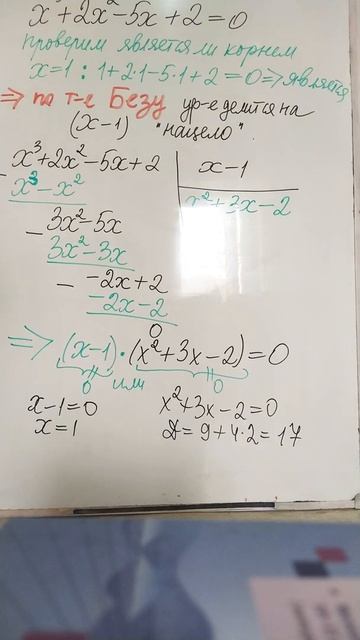 x³+2x²-5x+2=0
проверим является ли корнем
x=1 : 1+2·1-5·1+2=0 ⇒ является
⇒ по т-е Безу ур-е делится на
(x-1) "нацело".
x³+2x²-5x+2 | x-1
- x³-x² x²+3x-2
- 3x²-5x
3x²-3x
- -2x+2
-2x-2
0
⇒ (x-1)·(x²+3x-2)=0
0 или 0
x-1=0 x²+3x-2=0
x=1 D=9+4·2=17